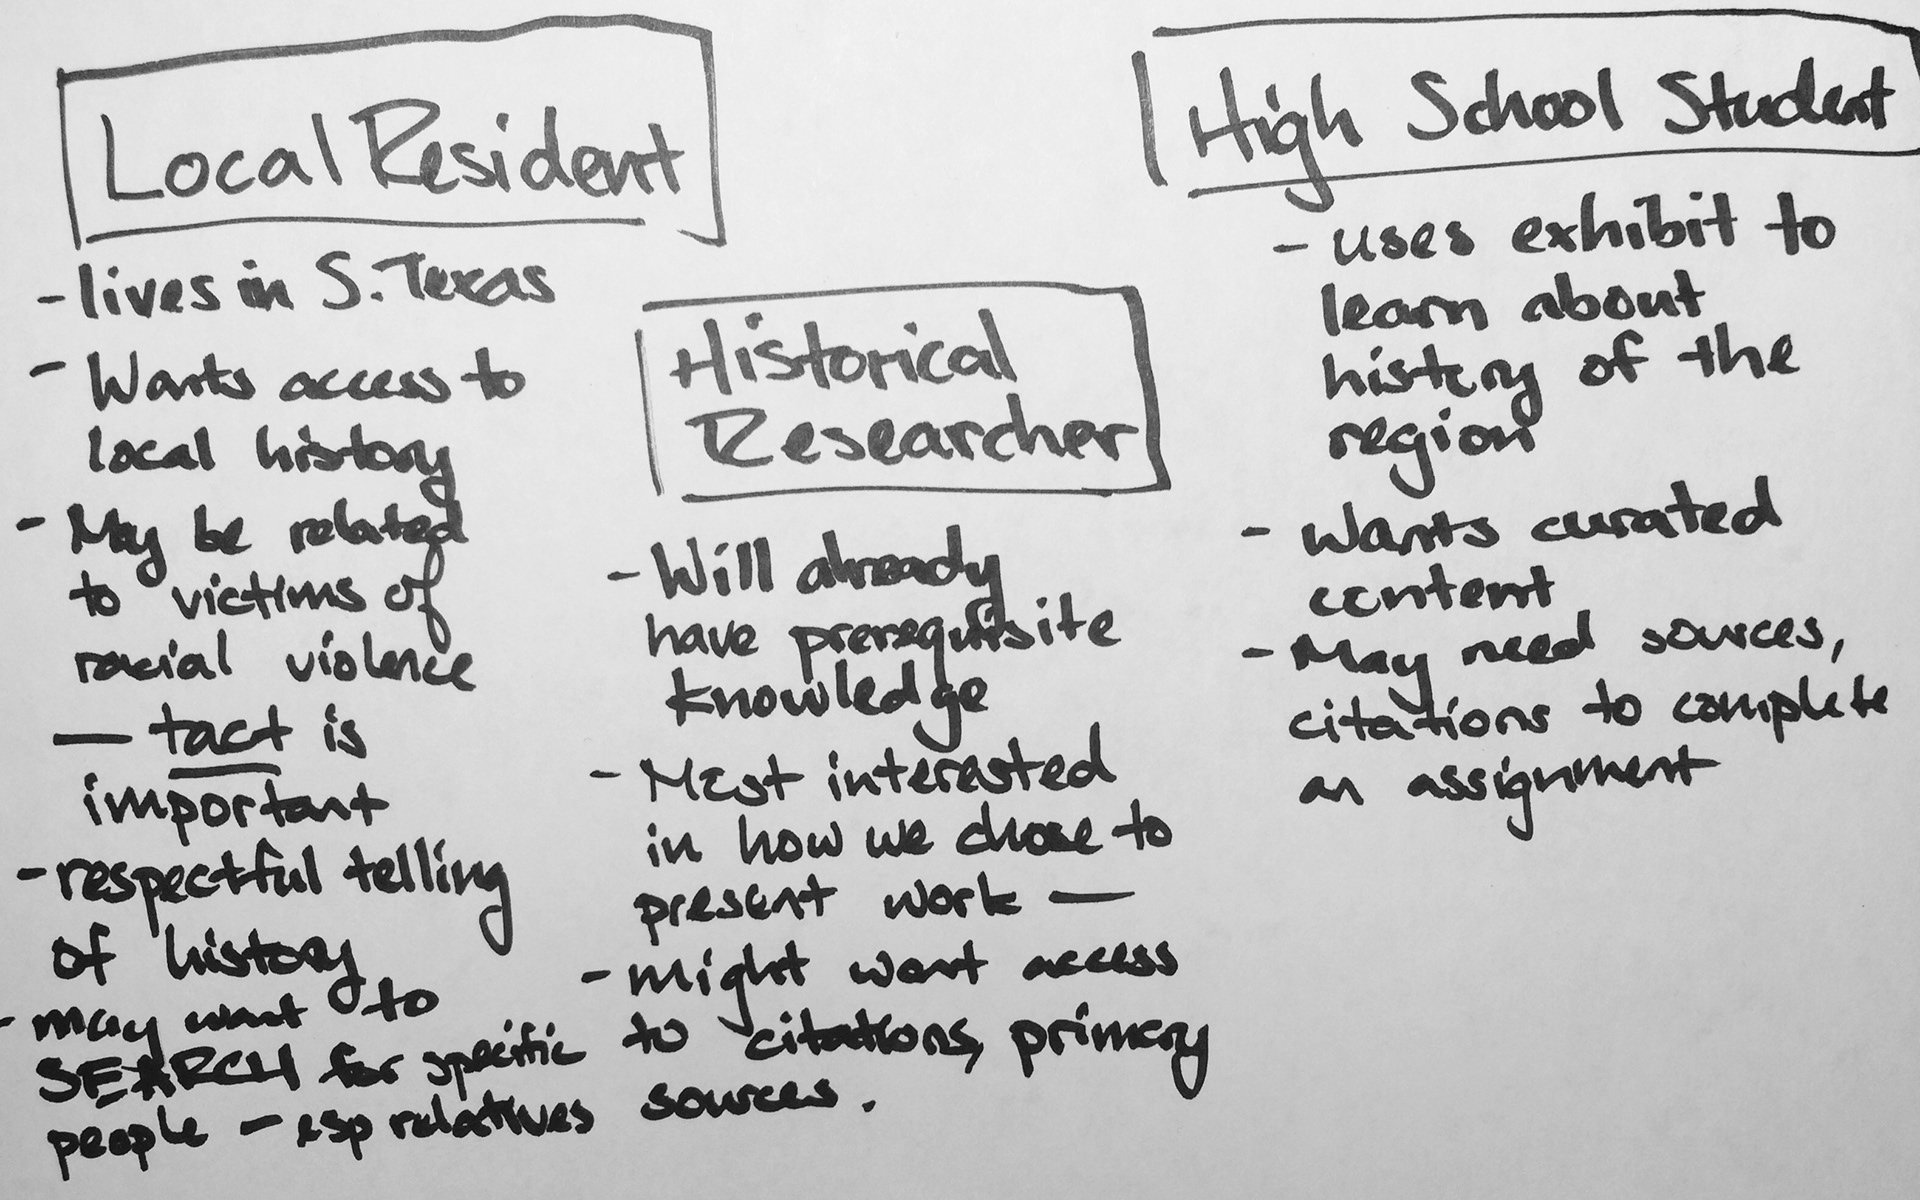 Local Resident
- lives in S. Texas
- Wants access to
local history
- May be related
to victims of
racial violence
— tact is
important
- respectful telling
of history
- may want to
SEARCH for specific
people - esp relatives
Historical
Researcher
- Will already
have prerequisite
knowledge
- Most interested
in how we chose to
present work —
- might want access
to citations, primary
sources.
High School Student
- uses exhibit to
learn about
history of the
region
- Wants curated
content
- May need sources,
citations to complete
an assignment